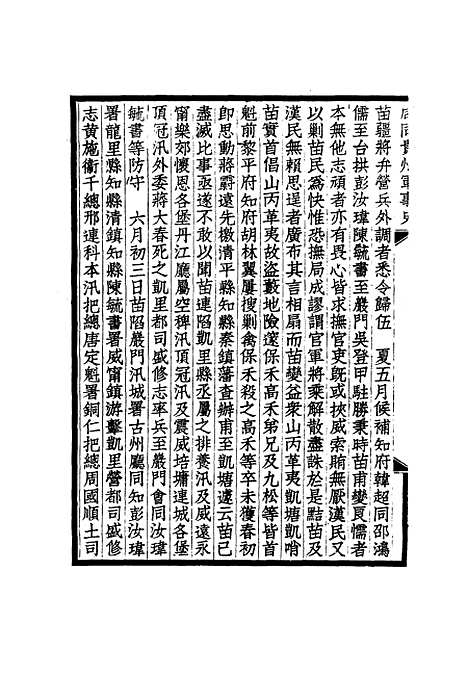 咸同貴州軍事史
苗疆將弁營兵外調者悉令歸伍　夏五月候補知府韓超同邵鴻
儒至台拱彭汝瑋陳毓書至巖門吳登甲駐勝秉時苗甫變良懦者
本無他志頑者亦有畏心皆求撫官吏旣或挾威索賄無厭漢民又
以剿苗民爲快惟恐撫局成謬謂官軍將乘解散盡誅於是黠苗及
漢民無賴思逞者廣布其言相扇而苗變益衆山丙革夷凱塘凱哨
苗實首倡山丙革夷故盜藪地險邃保禾高禾弟兄及九松等皆首
魁前黎平府知府胡林翼屢搜剿禽保禾殺之高禾等卒未獲春初
卽思動蔣霨遠先檄清平縣知縣秦鎭藩查辦甫至凱塘遽云苗已
盡滅比事亟遂不敢以聞苗連陷凱里縣丞屬之排養汛及威遠永
甯樂郊懷恩各堡丹江廳屬空稗汛頂冠汛及震威培墉連城各堡
頂冠汛外委蔣大春死之凱里都司戚修志率兵至巖門會同汝瑋
毓書等防守　六月初三日苗陷巖門汛城署古州廳同知彭汝瑋
署龍里縣知縣清鎭知縣陳毓書署威甯鎭游擊凱里營都司戚修
志黄施衞千總邢連科本汛把總唐定魁署銅仁把總周國順土司